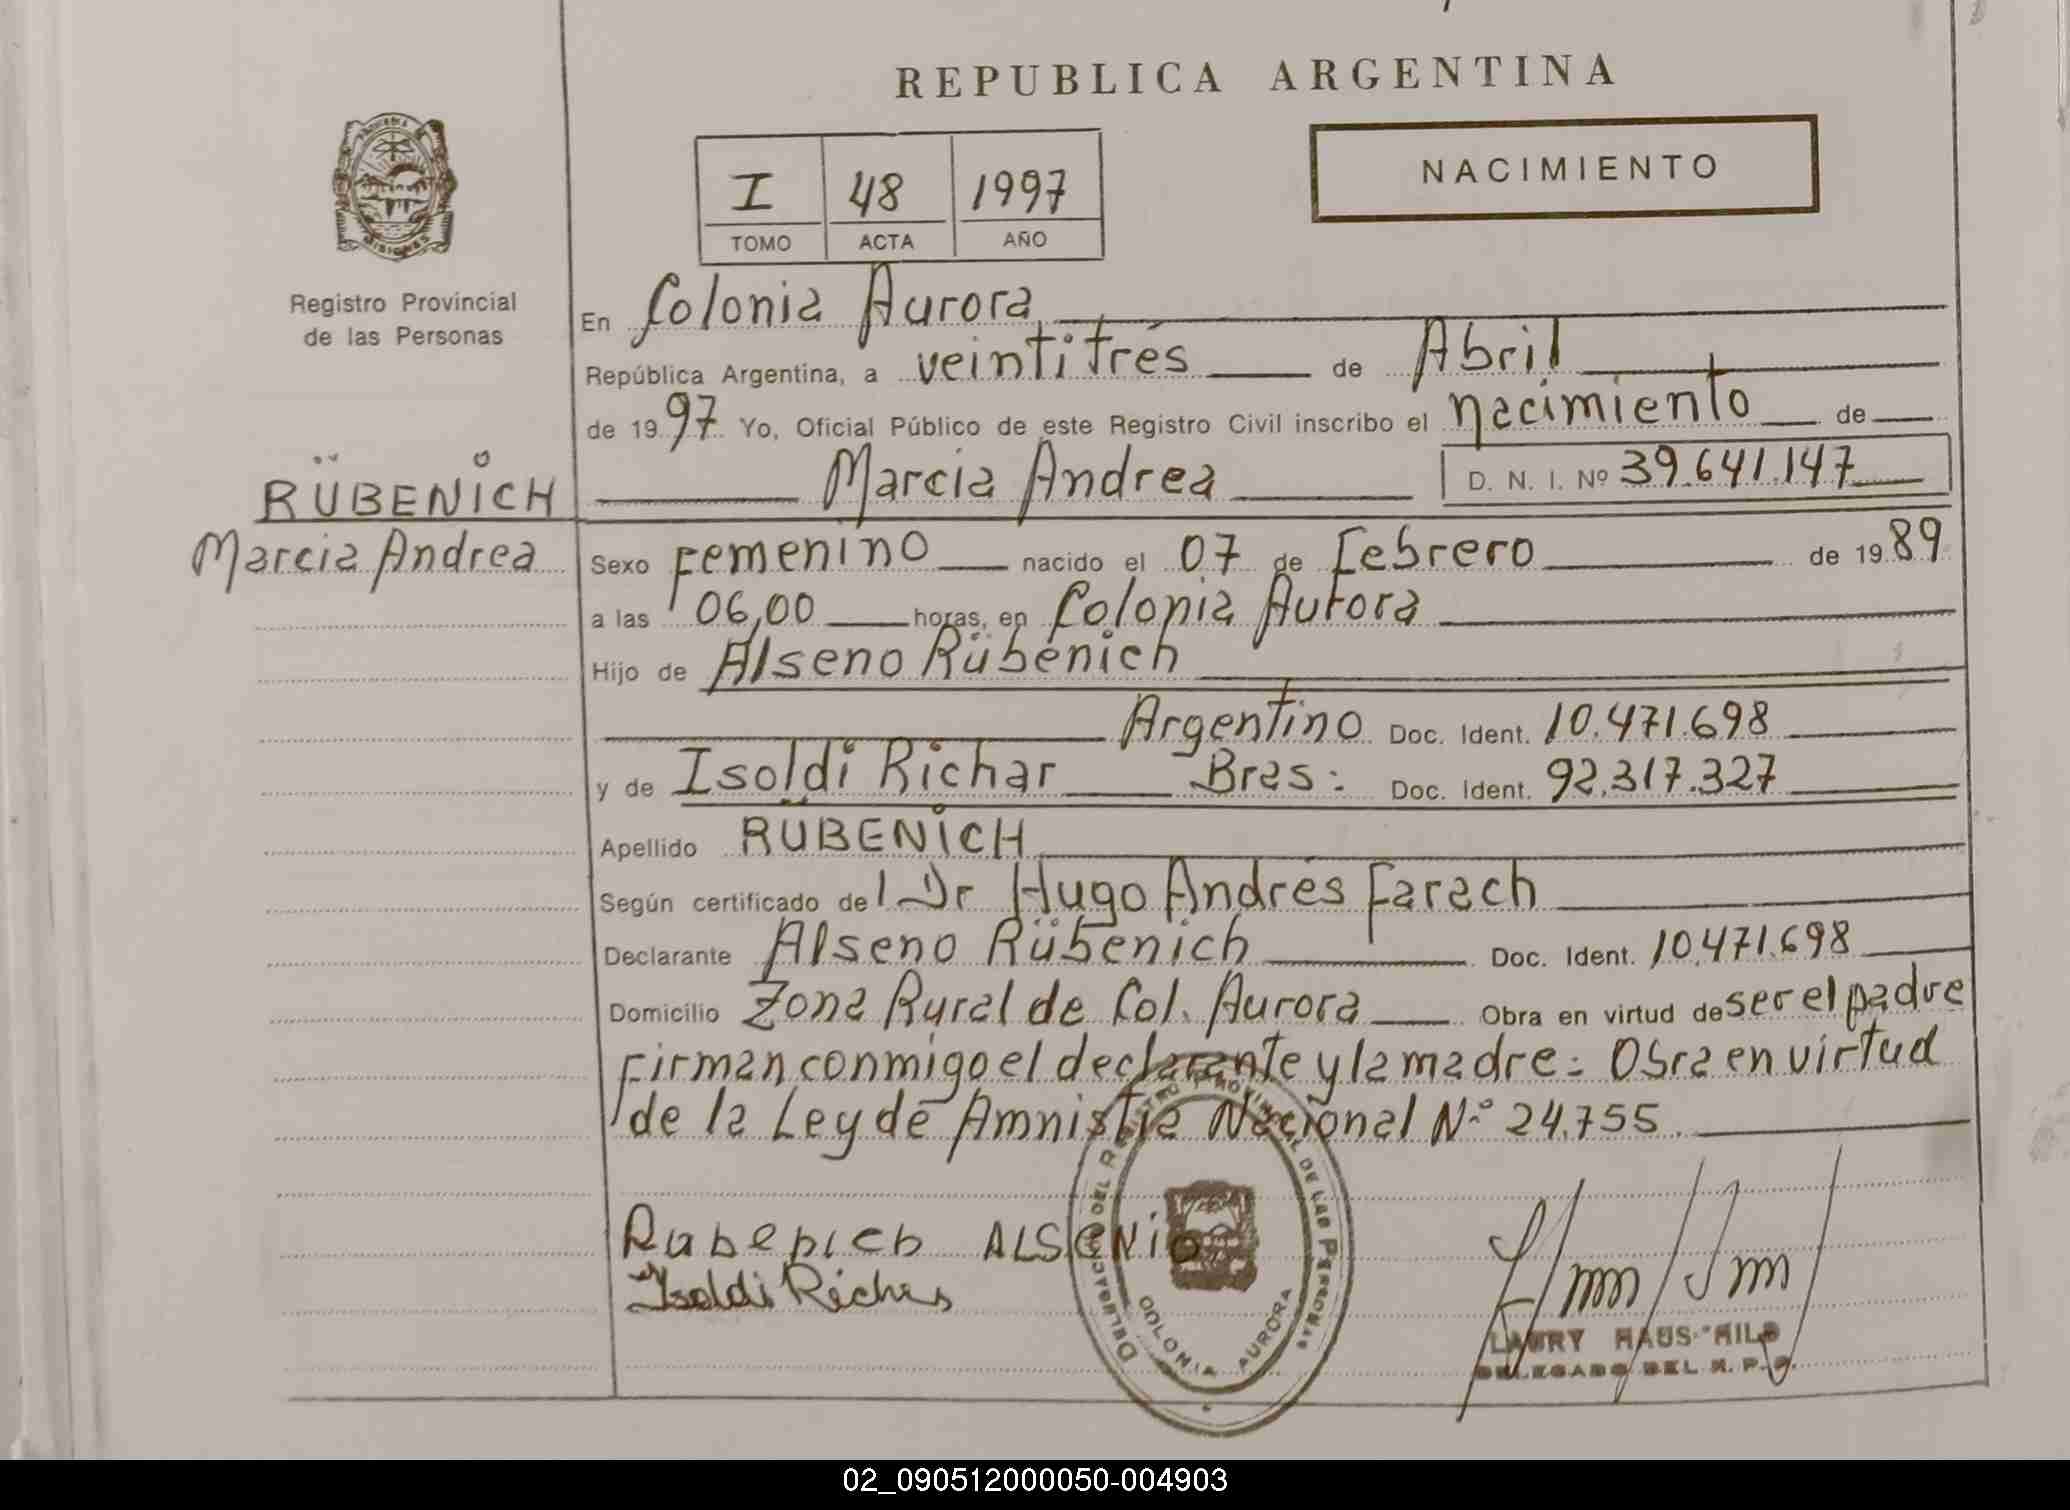 REPUBLICA ARGENTINA
NACIMIENTO
I 48 1997
TOMO ACTA AÑO
PROVINCIA DE MISIONES
Registro Provincial
de las Personas
RÜBENICH
Marcia Andrea
En Colonia Aurora
República Argentina, a veintitrés de Abril
de 1997 Yo, Oficial Público de este Registro Civil inscribo el nacimiento de
Marcia Andrea D. N. I. Nº 39.641.147
Sexo Femenino nacido el 07 de Febrero de 1989
a las 06,00 horas, en Colonia Aurora
Hijo de Alseno Rübenich
Argentino Doc. Ident. 10.471.698
y de Isoldi Richar Bras: Doc. Ident. 92.317.327
Apellido RÜBENICH
Según certificado del Dr Hugo Andrés Farach
Declarante Alseno Rübenich Doc. Ident. 10.471.698
Domicilio Zona Rural de Col. Aurora Obra en virtud de ser el padre
Firman conmigo el declarante y la madre: Obra en virtud
de la Ley de Amnistia Nacional N.º 24.755.
Rubenich ALSENiO
Isoldi Richar
DELEGACION DEL REGISTRO PROVINCIAL DE LAS PERSONAS
COLONIA AURORA
LAURY HAUS
DELEGADO DEL R. P. P.
02_090512000050-004903